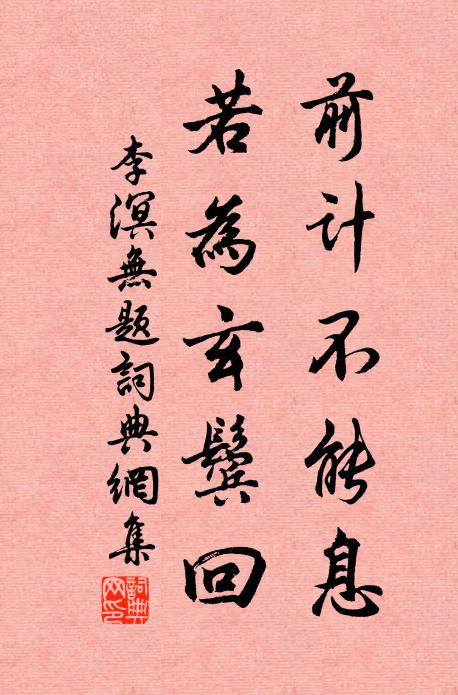 前计不能息
若為玄鬢回
李溟無題詞典網集
詞典
網印